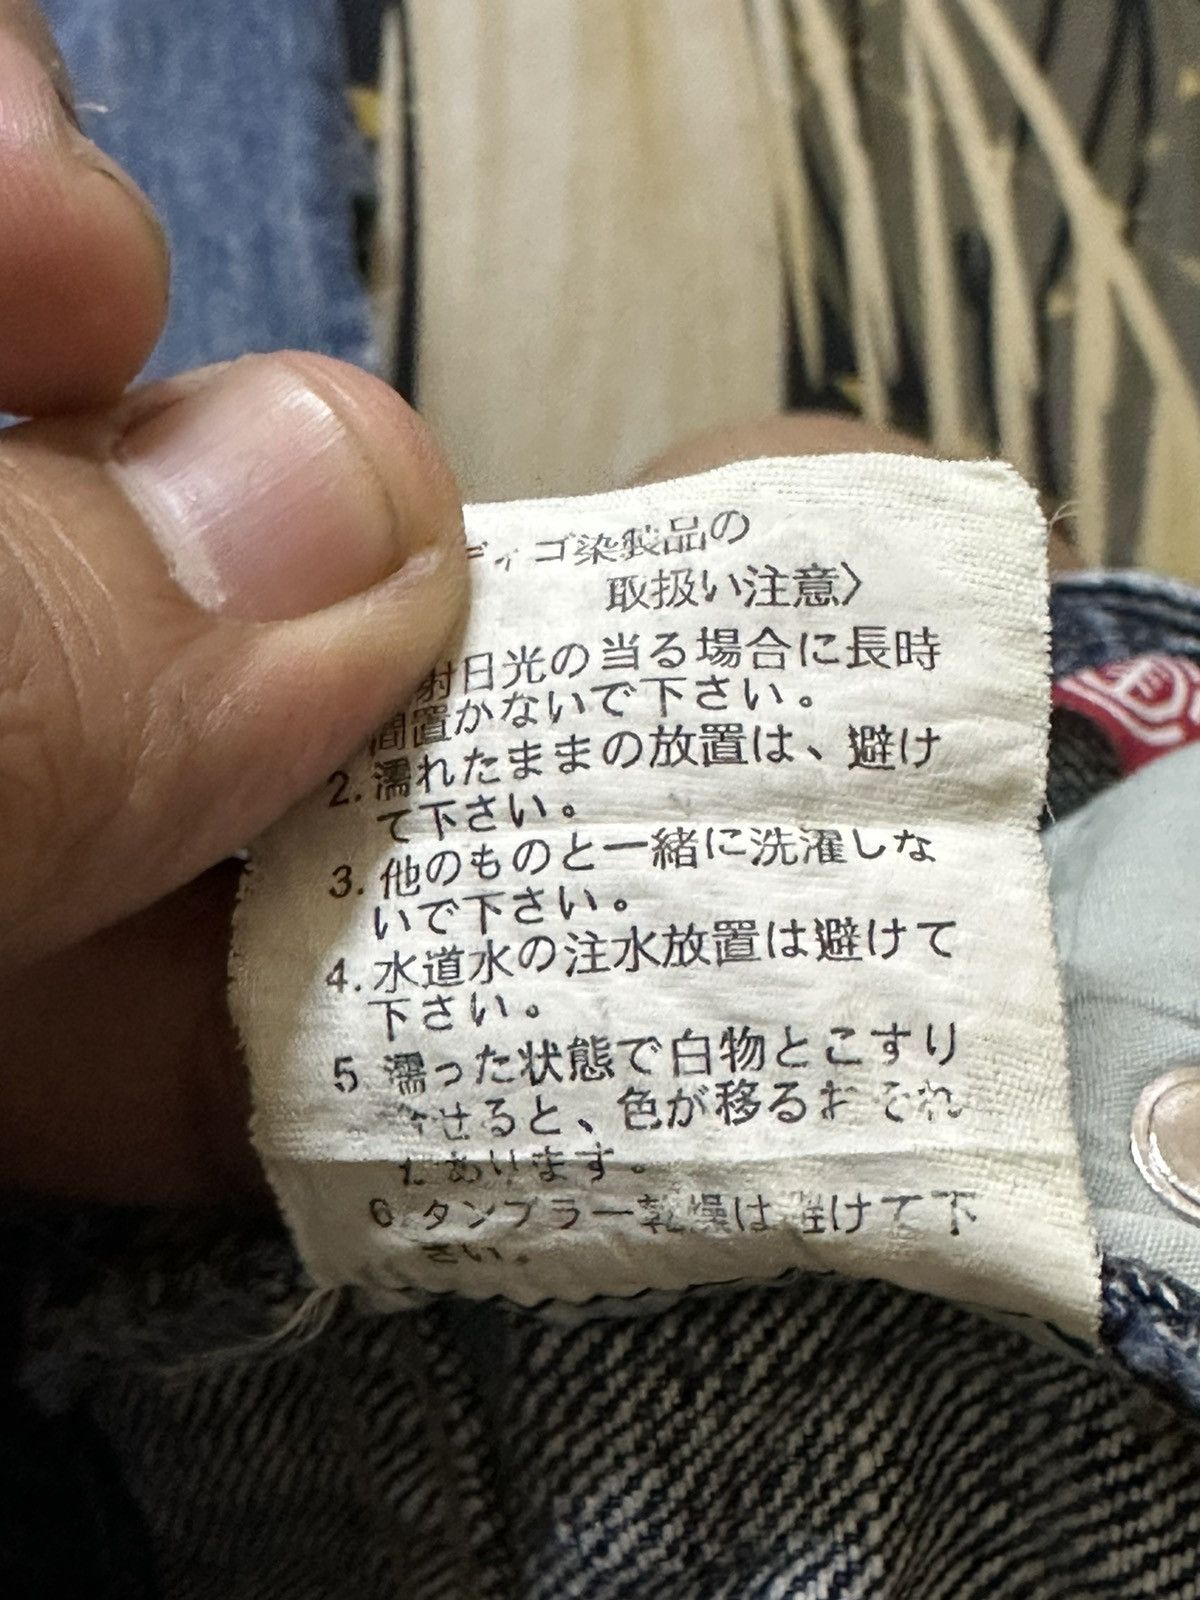 ディゴ染製品の
取扱い注意〉
射日光の当る場合に長時
間置かないで下さい。
2. 濡れたままの放置は、避け
て下さい。
3. 他のものと一緒に洗濯しな
いで下さい。
4. 水道水の注水放置は避けて
下さい。
5 濡った状態で白物とこすり
合せると、色が移るおそれ
があります。
6. タンブラー乾燥は避けて下
さい。